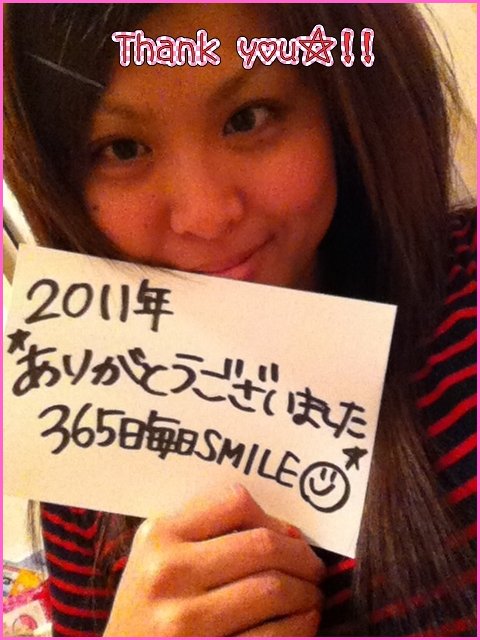 Thank you☆!!
2011年
★ありがとうございました★
365日毎日SMILE☺